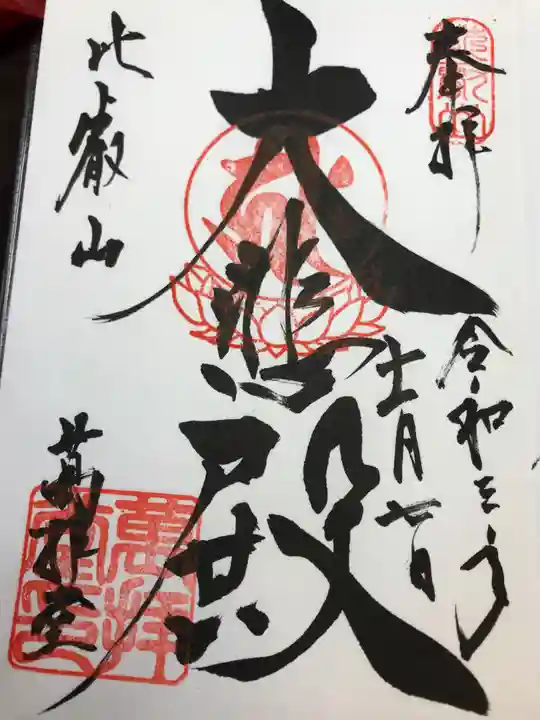 奉拝
令和三年
十一月七日
大悲殿
比叡山
萬拝堂